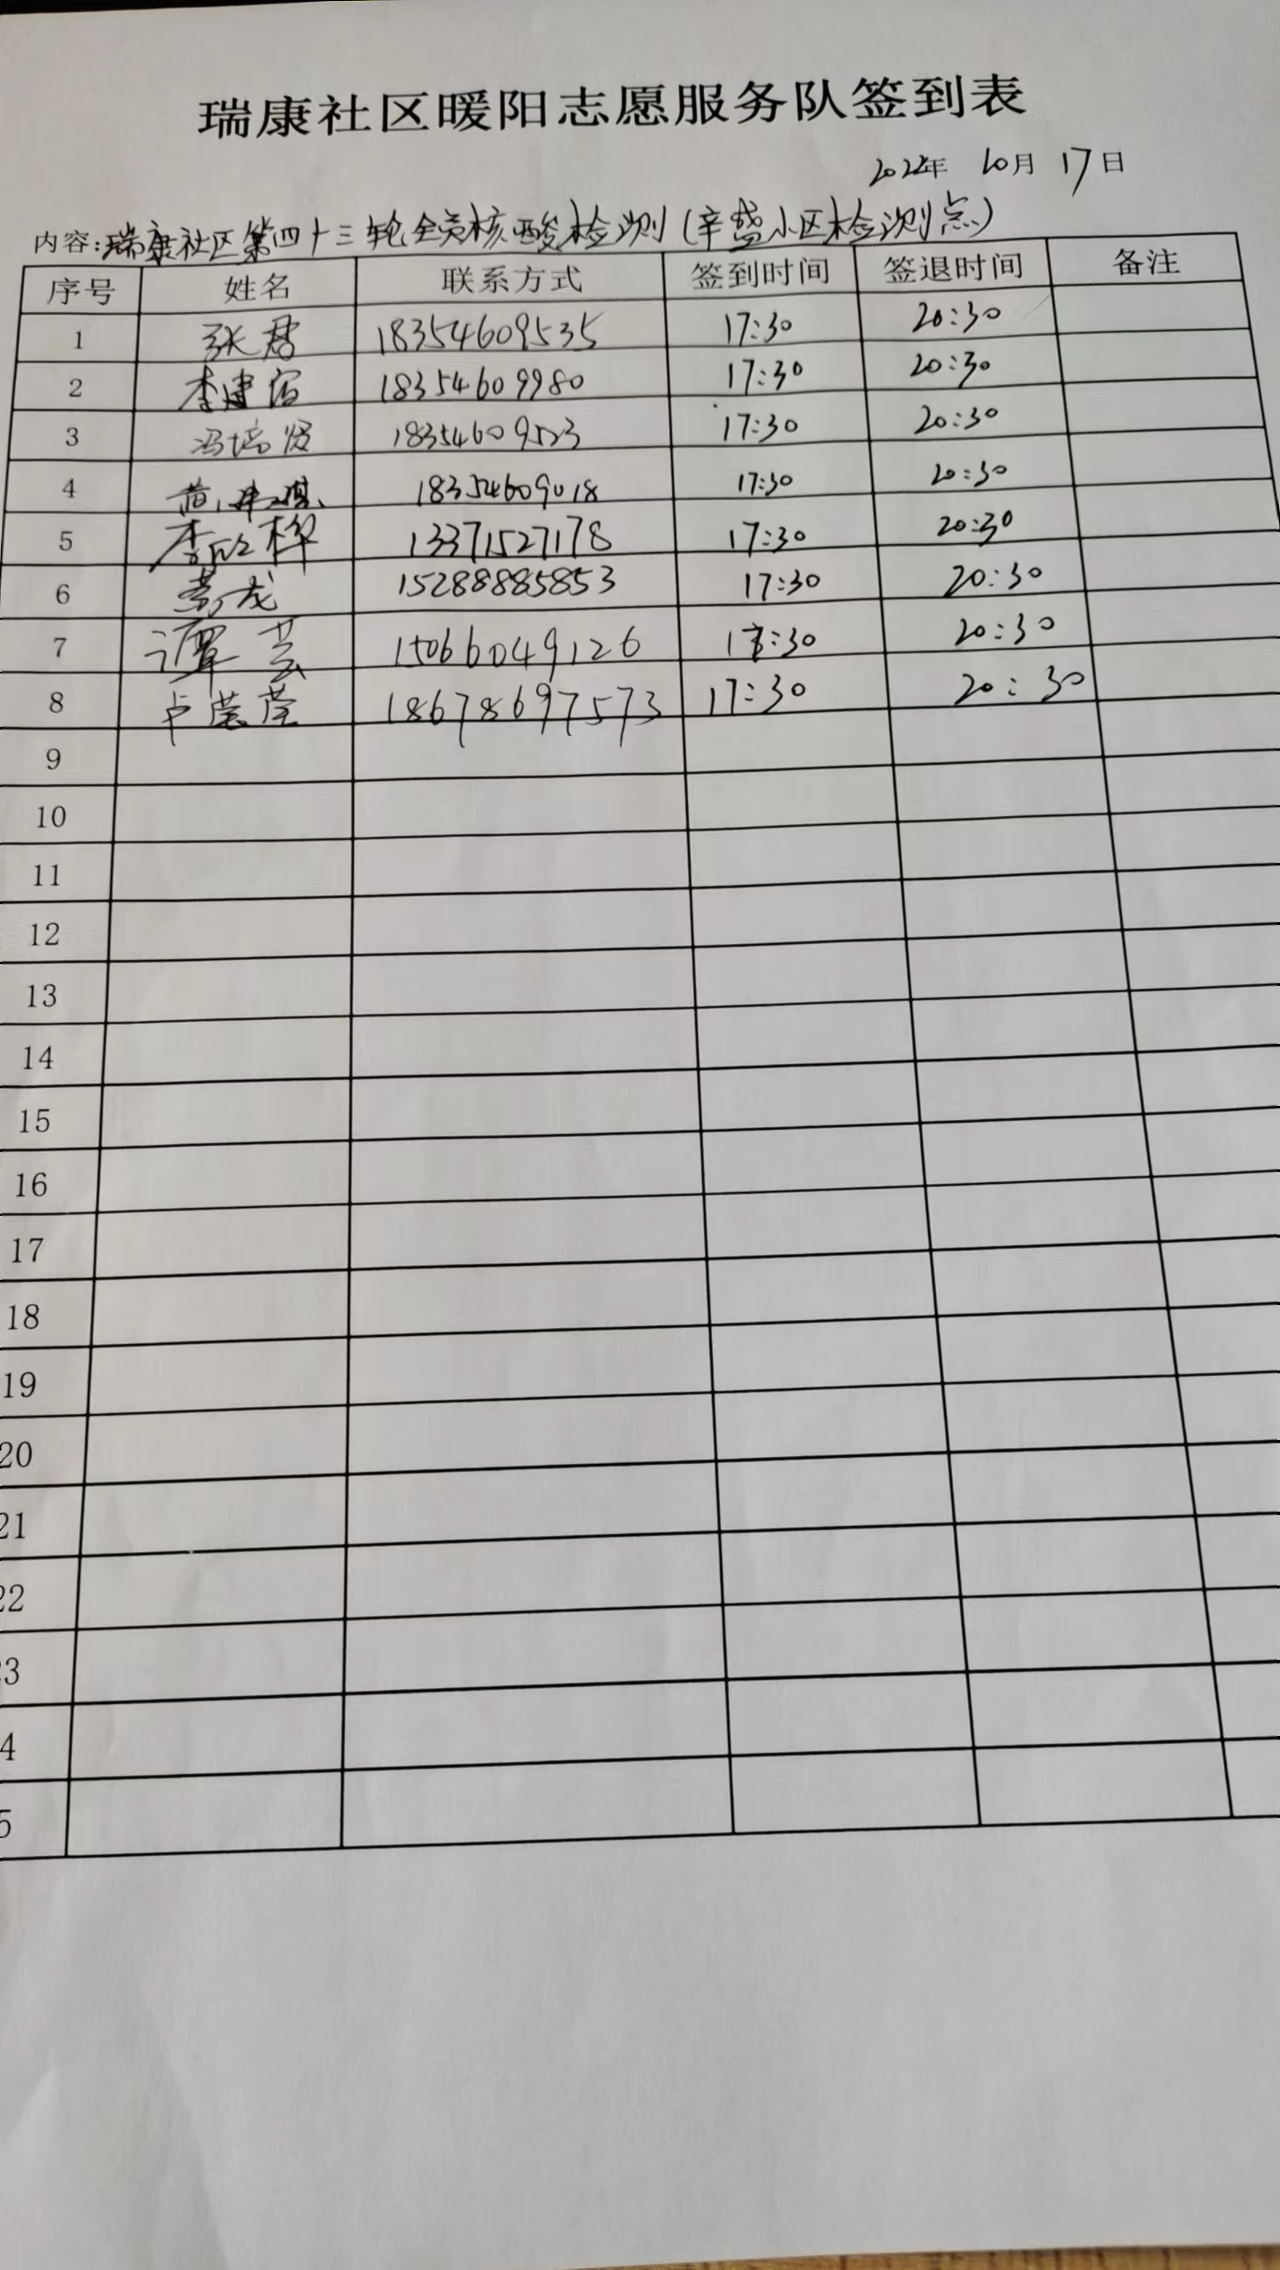 瑞康社区暖阳志愿服务队签到表
2022年 10月 17日
内容:瑞康社区第四十三轮全员核酸检测(辛盛小区检测点)
序号 姓名 联系方式 签到时间 签退时间 备注
1 张君 18354609535 17:30 20:30
2 李建 18354609980 17:30 20:30
3 冯培贤 18354609523 17:30 20:30
4 黄 18354609018 17:30 20:30
5 李欣桦 13371527178 17:30 20:30
6 龙 15288885853 17:30 20:30
7 谭芸 15066049126 17:30 20:30
8 卢莹莹 18678697573 17:30 20:30
9
10
11
12
13
14
15
16
17
18
19
20
21
22
3
4
5